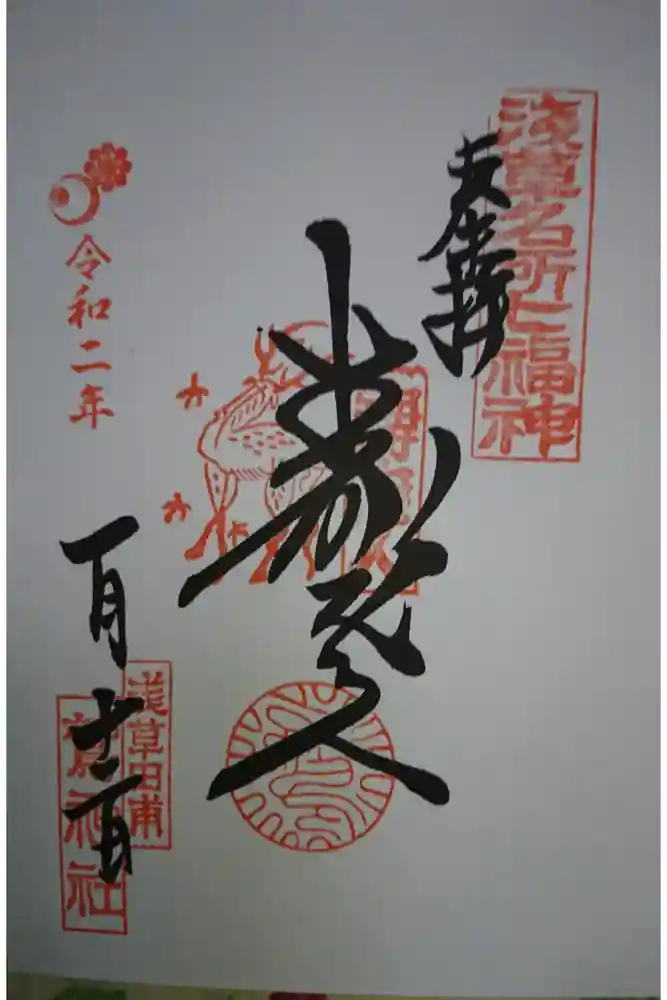 浅草名所七福神
奉拝
壽老人
令和二年
一月十二日
淺草田甫
鷲神社